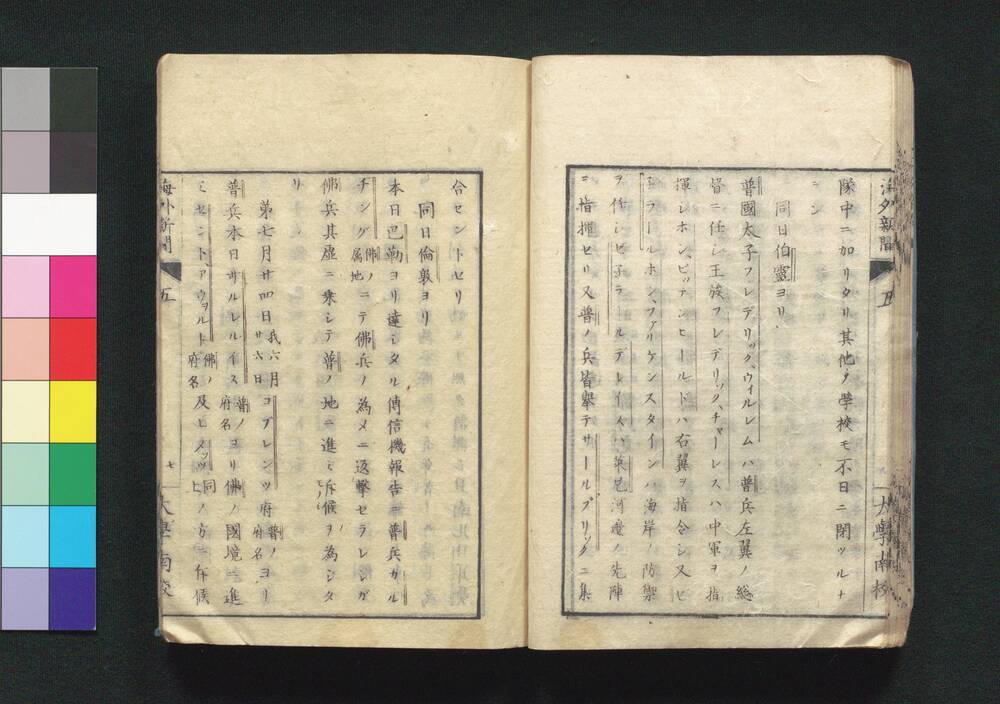 隊中ニ加リタリ其他ノ學校モ不日ニ閉ツルナ
ラン
同日伯靈ヨリ
普國太子フレデリック、ウィルレムハ普兵左翼ノ總
督ニ任シ王族フレデリック、チャーレスハ中軍ヲ指
揮シホン、ビッテンヒールドハ右翼ヲ指令シ又ビ
ラールホン、ファリケンスタインハ海岸ノ防禦
ヲ任シ
ルデレイスハ萊尼河邊ノ先陣
ニ指揮セリ又普ノ兵皆擧テサールブリックニ集
合セントセリ
同日倫敦ヨリ
本日巴勒ヨリ達シタル傳信機報告ニ普兵ガル
チング佛ノ属地ニテ佛兵ノ為メニ返擊セラレシガ
佛兵其虛ニ乘シテ普ノ地ニ進ミ斥候ヲ為シタ
リ
第七月廿四日我六月廿六日コブレンツ府普ノ府名ヨリ
普兵本日サルレルイス普ノ府名ヨリ佛ノ國境ニ進
ミセント、アウヲルト佛ノ府名及ヒメッツ同ヒノ方ニ斥候
海外新聞
五
七
大學南校
海外新聞
五
大學南校